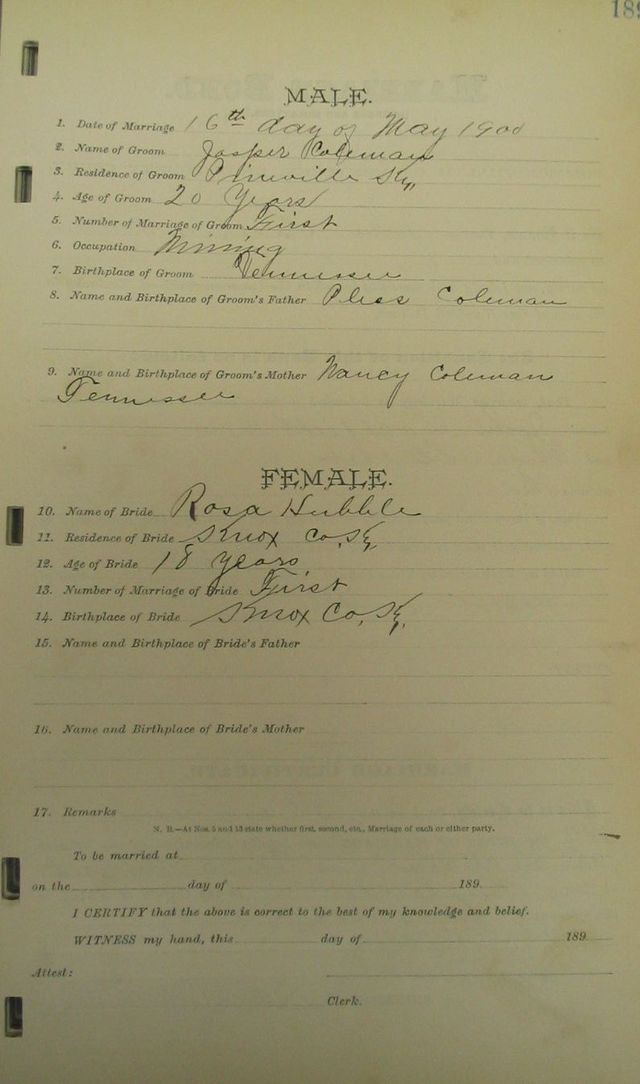 189
MALE.
1. Date of Marriage 16th day of May 1900
2. Name of Groom Jasper Coleman
3. Residence of Groom Pineville Ky,
4. Age of Groom 20 Years
5. Number of Marriage of Groom First
6. Occupation Mining
7. Birthplace of Groom Tennessee
8. Name and Birthplace of Groom's Father Pless Coleman
9. Name and Birthplace of Groom's Mother Nancy Coleman
Tennessee
FEMALE.
10. Name of Bride Rosa Hubble
11. Residence of Bride Knox Co, Ky,
12. Age of Bride 18 years
13. Number of Marriage of Bride First
14. Birthplace of Bride Knox Co, Ky,
15. Name and Birthplace of Bride's Father
16. Name and Birthplace of Bride's Mother
17. Remarks
N. B.—At Nos. 5 and 13 state whether first, second, etc., Marriage of each or either party.
To be married at
on the day of 189
I CERTIFY that the above is correct to the best of my knowledge and belief.
WITNESS my hand, this day of 189
Attest:
Clerk.